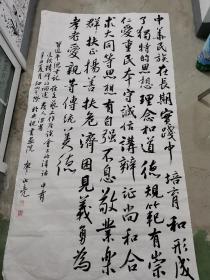 中華民族在長期實踐中培育和形成
了獨特的思想理念和道德規範有崇
仁愛重民本守誠信講辯證尚和合
求大同等思想有自強不息敬業樂
群扶正揚善扶危濟困見義勇為
孝老愛親等傳統美德
習近平總書記在文藝工作座談會上的講話